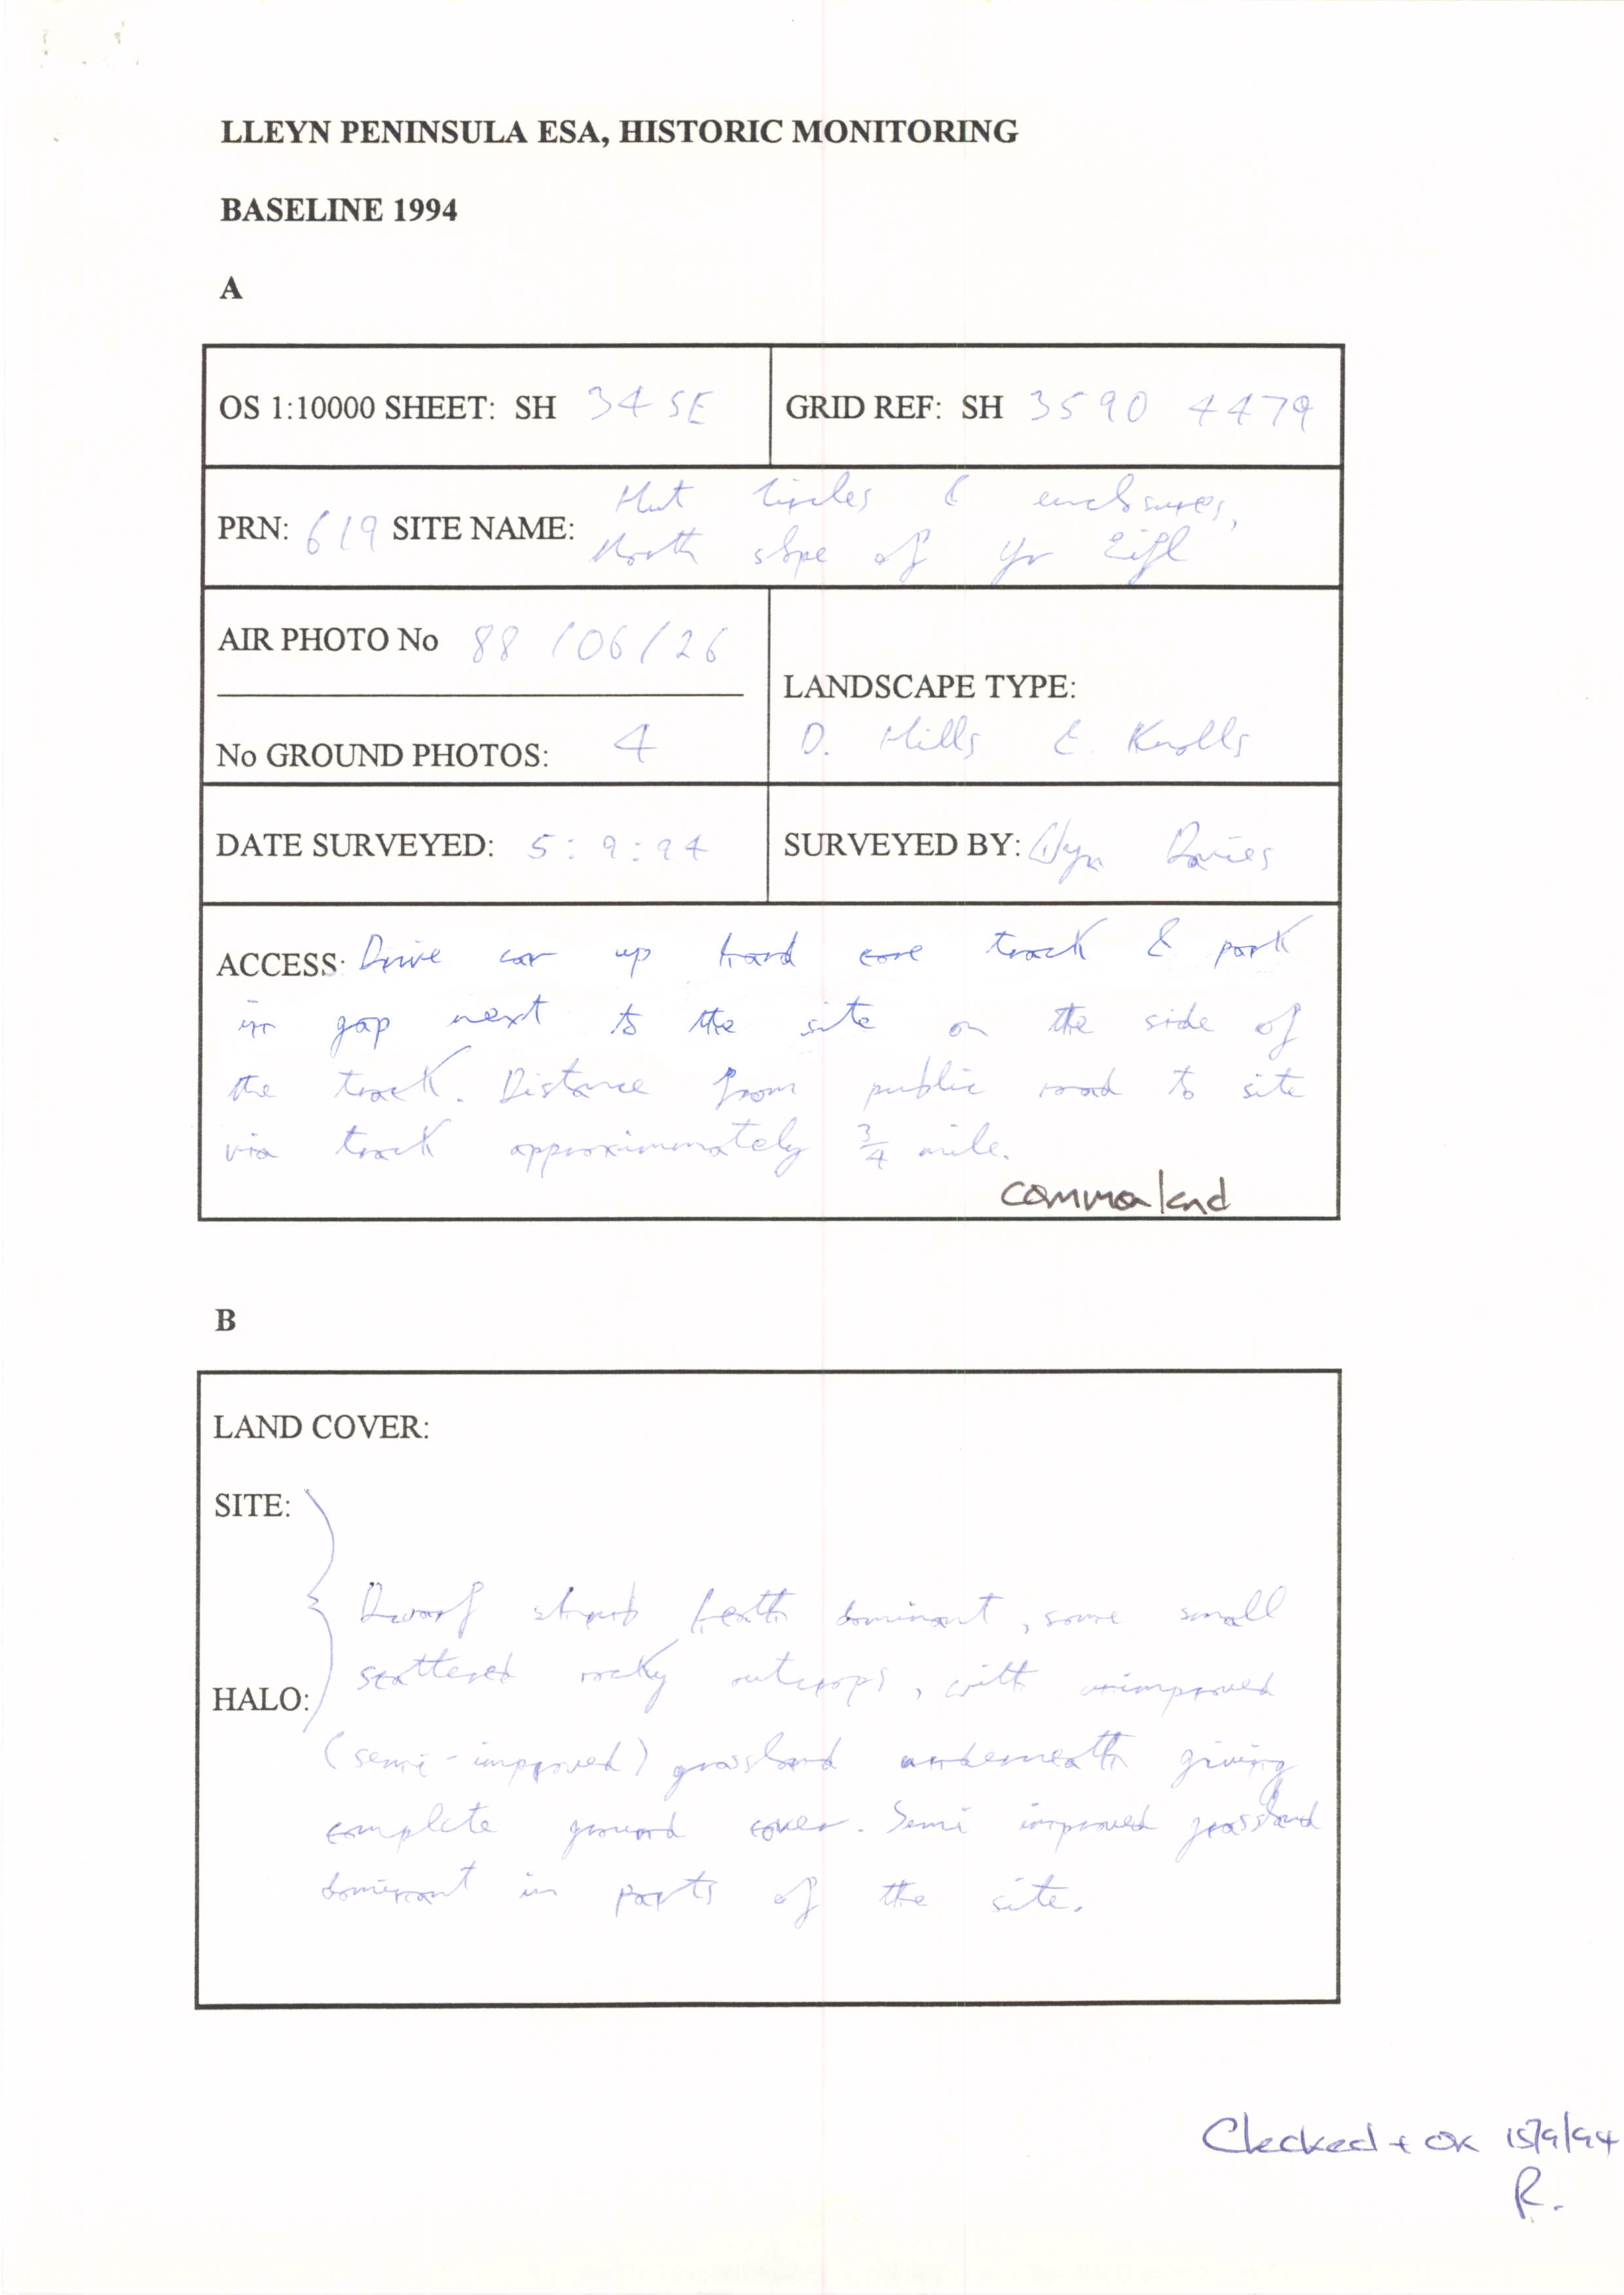 LLEYN PENINSULA ESA, HISTORIC MONITORING
BASELINE 1994
A
OS 1:10000 SHEET: SH 34 SE
GRID REF: SH 3590 4479
PRN: 619 SITE NAME: Hut Circles & enclosures,
North slope of Yr Eifl
AIR PHOTO No 88/06/26
No GROUND PHOTOS: 4
LANDSCAPE TYPE:
D. Hills E. Knolls
DATE SURVEYED: 5:9:94
SURVEYED BY: Davies
ACCESS: Drive car up hard core track & park
in gap next to the site on the side of
the track. Distance from public road to site
via track approximmately 3/4 mile.
common land
B
LAND COVER:
SITE:
Dwarf shrub heath dominant, some small
scattered rocky outcrops, with unimproved
HALO:
(semi-improved) grassland underneath giving
complete ground cover. Semi improved grassland
dominant in parts of the site.
Checked + OK 15/9/94
R.